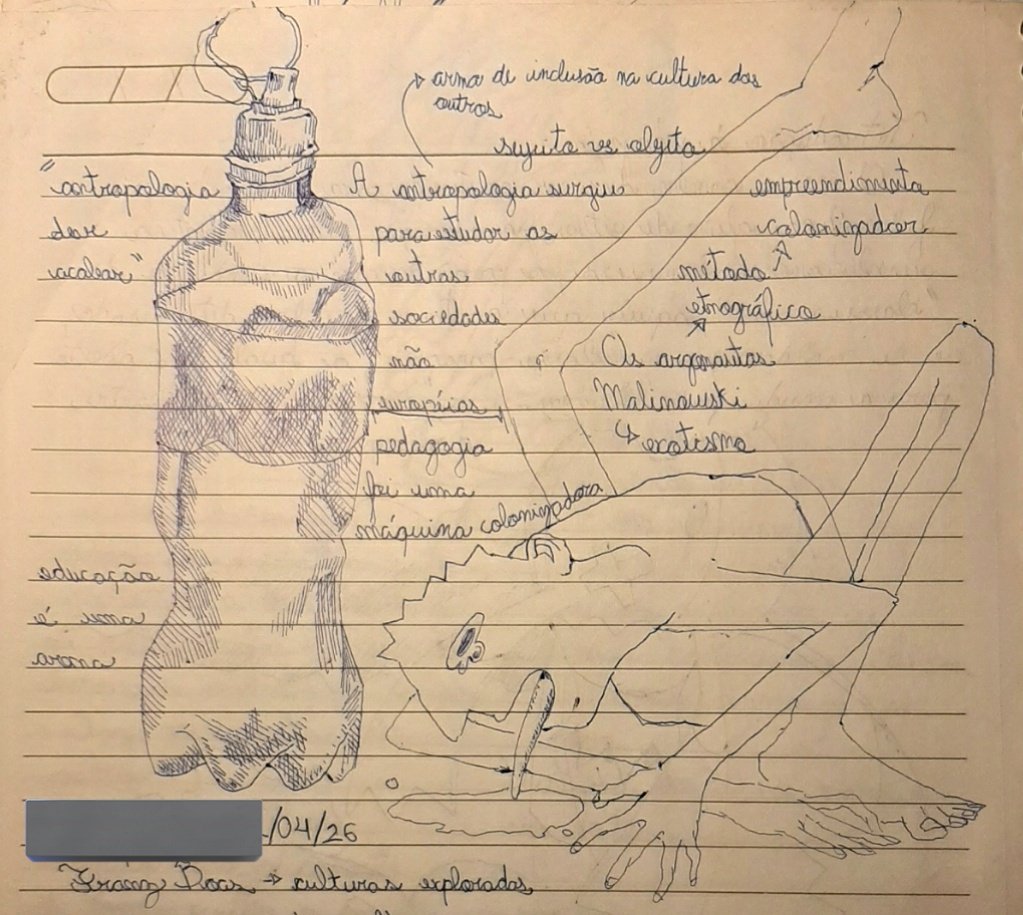 arma de inclusão na cultura dos
outros
sujeito vs objeto
"antropologia
deve
acabar"
A antropologia surgiu
para estudar as
outras
sociedades
não
européias
pedagogia
foi uma
máquina colonizadora
empreendimento
colonizador
método
etnográfico
Os argonautas
Malinowski
↳ exotismo
educação
é uma
arma
/04/26
Franz Boas → culturas exploradas